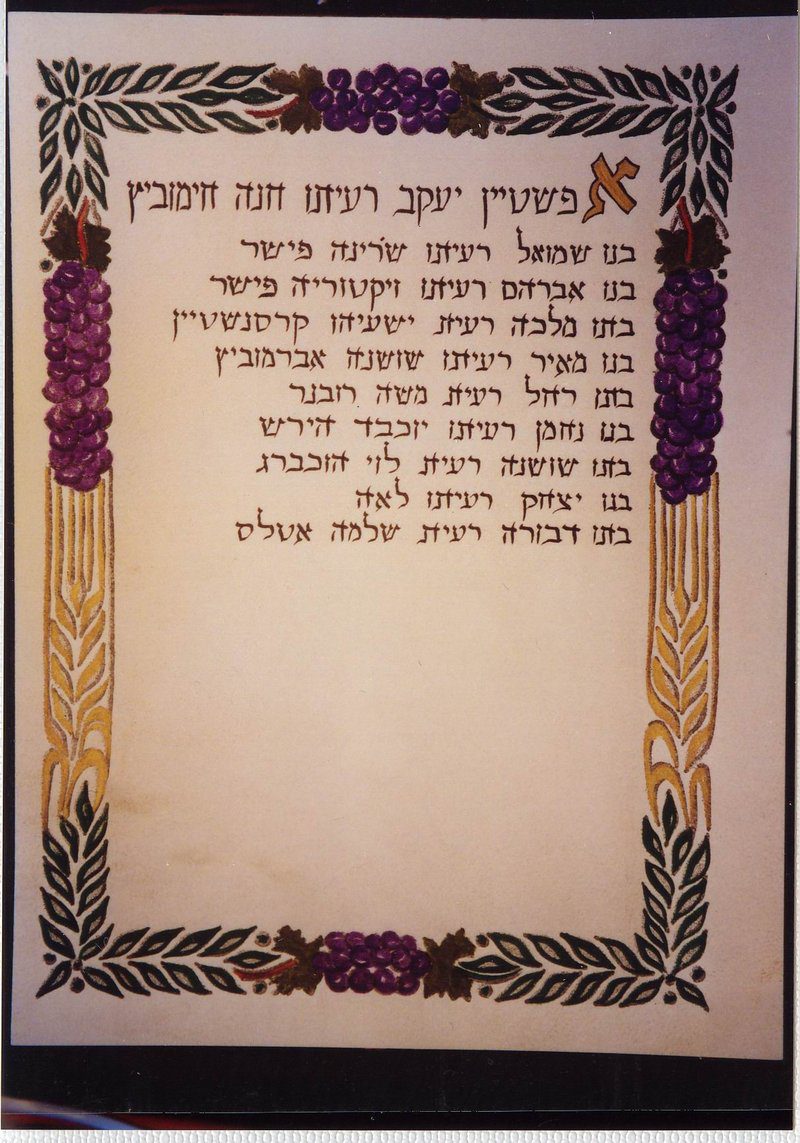 אפשטיין יעקב רעיתו חנה חימוביץ
בנו שמואל רעיתו שרינה פישר
בנו אברהם רעיתו ויקטוריה פישר
בתו מלכה רעית ישעיהו קרסנשטיין
בנו מאיר רעיתו שושנה אברמוביץ
בתו רחל רעית משה רובנר
בנו נחמן רעיתו יוכבד הירש
בתו שושנה רעית לוי הוכברג
בנו יצחק רעיתו לאה
בתו דבורה רעית שלמה אטלס